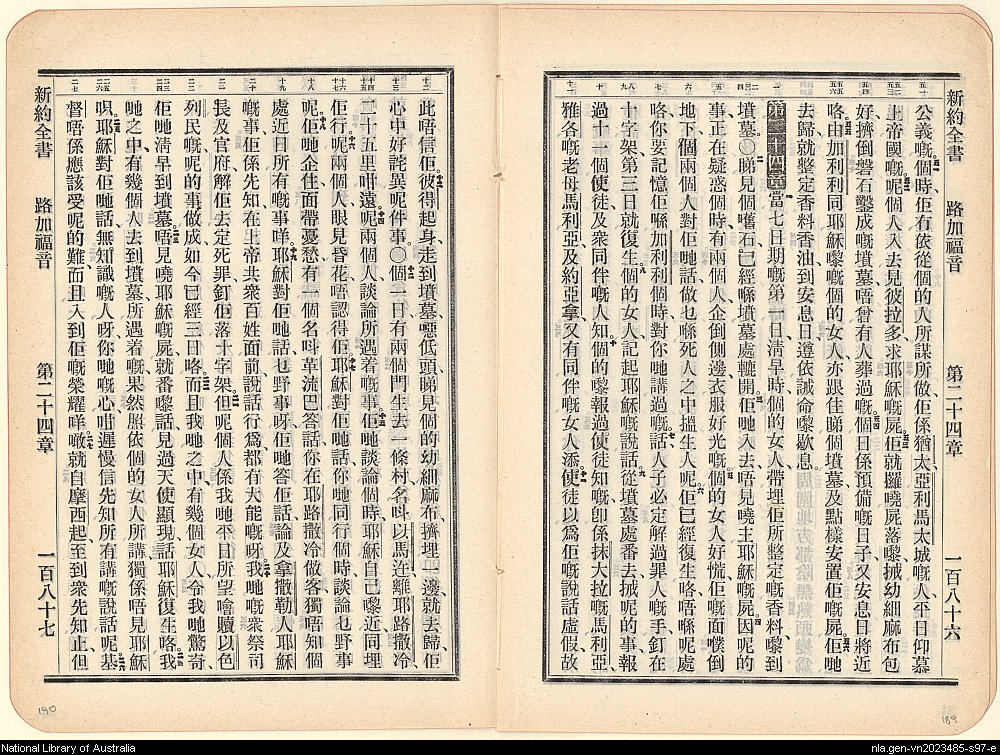 新約全書 路加福音 第二十四章 一百八十六
公義嘅個時佢有依從個的人所謀所做佢係猶太亞利馬太城嘅人平日仰慕
上帝國嘅呢個人入去見彼拉多求耶穌嘅屍佢就攞曉屍落嚟搣幼細麻布包
好擠倒磐石鑿成嘅墳墓嘅墳墓唔曾有人葬過嘅個日係預備嘅日子又安息日將近
咯由加利利同耶穌嚟嘅個的女人亦跟住睇個墳墓及點樣安置佢嘅屍佢哋
去歸就整定香料香油到安息日遵依誡命嚟歇息
第二十四章 當七日期嘅第一日清早時個的女人帶埋佢所整定嘅香料嚟到
墳墓〇睇見個嚿石已經喺墳墓處轆開佢哋入去唔見曉主耶穌嘅屍因呢的
事正在疑惑個時有兩個人企倒側邊衣服好光嘅個的女人好慌佢嘅面僕倒
地下個兩個人對佢哋話做乜喺死人之中搵生人呢佢已經復生咯唔喺呢處
咯你要記憶佢喺加利利個時對你哋講過嘅話人子必定解過罪人嘅手釘在
十字架第三日就復生個的女人記起耶穌嘅說話從墳墓處番去搣呢的事報
過十一個使徒及衆同伴嘅人知個的嚟報過使徒知嘅卽係抹大拉嘅馬利亞
雅各嘅老母馬利亞及約亞拿又有同伴嘅女人添使徒以爲佢嘅說話虛假故
此唔信佢彼得起身走到墳墓𠵇低頭睇見個的幼細麻布擠埋一邊就去歸佢
心中好詫異呢件事〇個一日有兩個門生去一條村名呌以馬迕離耶路撒冷
二十五里咁遠呢兩個人談論所遇着嘅事佢哋談論個時耶穌自己嚟近同埋
佢行呢兩個人眼見昏花唔認得佢耶穌對佢哋話你哋同行個時談論乜野事
呢佢哋企住面帶憂愁有一個名呌革流巴答話你在耶路撒冷做客獨唔知個
處近日所有嘅事咩耶穌對佢哋話乜野事呀佢哋答佢話論及拿撒勒人耶穌
嘅事佢係先知在上帝共衆百姓面前說話行爲都有大能嘅呀我哋嘅衆祭司
長及官府解佢去定死罪釘佢落十字架但呢個人係我哋平日所望噲贖以色
列民嘅呢的事做成如今已經三日咯而且我哋之中有幾個女人令我哋驚奇
佢哋淸早到墳墓唔見曉耶穌嘅屍就番嚟話見過天使顯現話耶穌復生咯我
哋之中有幾個人去到墳墓所遇着嘅果然照依個的女人所講獨係唔見耶穌
呮耶穌對佢哋話無知識嘅人呀你哋嘅心咁遲慢信先知所有講嘅說話呢基
督唔係應該受呢的難而且入到佢嘅榮耀咩噉就自摩西起至到衆先知止但
新約全書 路加福音 第二十四章 一百八十七
190
189
National Library of Australia
nla.gen-vn2023485-s97-e